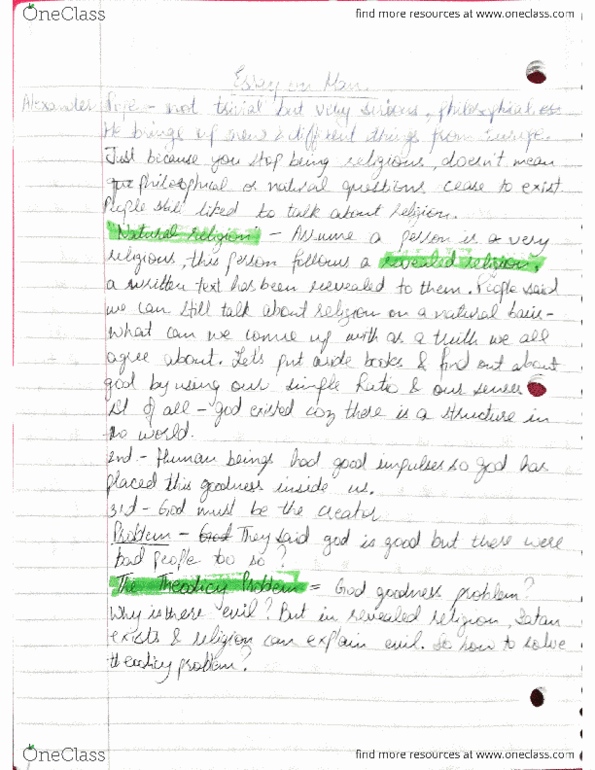 OneClass
find more resources at www.oneclass.com
Essay on Man.
Alexander Pope - not trivial but very serious, philosophical,
He brings up new & different things from Europe.
Just because you stop being religious, doesn't mean
philosophical or natural questions cease to exist.
People still liked to talk about religion.
"Natural religion" - Assume a person is a very
religious, this person follows a revealed religion,
a written text has been revealed to them. People said
we can still talk about religion on a natural basis -
what can we come up with as a truth we all
agree about. Let's put aside books & find out about
god by using our simple Ratio & our senses
1st of all - god existed coz there is a structure in
world.
2nd - Human beings had good impulses so god has
placed this goodness inside us.
3rd - God must be the creator
Problem - God They said god is good but there were
bad people too so?
The Theodicy Problem = God goodness problem?
Why is there evil? But in revealed religion, Satan
exists & religion can explain evil. So how to solve
theodicy problem?
OneClass
find more resources at www.oneclass.com